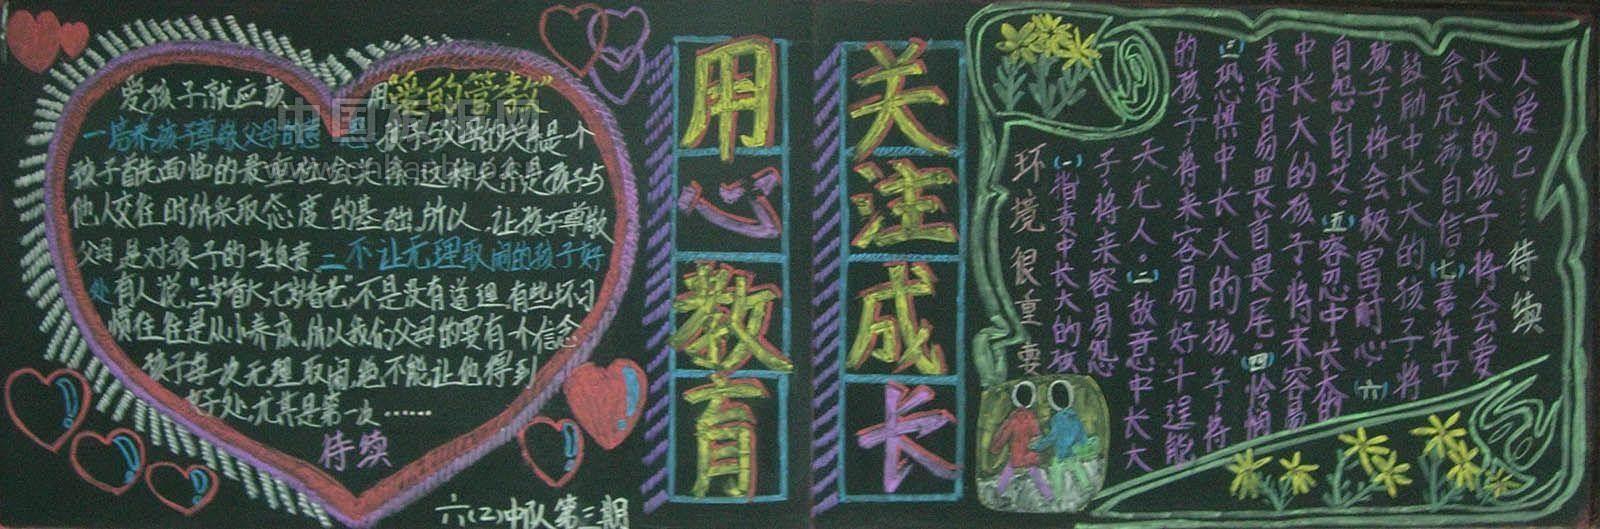 爱孩子就应该 用"爱的管教"
一培养孩子尊敬父母的意 孩子与父母的关系是个
孩子首先面临的最重 社会关系,这种关系是孩子与
他人交往时所采取态度的基础,所以,让孩子尊敬
父母是对孩子的一生负责 二 不让无理取闹的孩子好
处 有人说,"三岁看大七岁看老",不是没有道理.有些坏习
惯往往是从小养成,所以我们父母的要有一个信念
孩子每一次无理取闹,绝不能让他得到
好处,尤其是第一次……
待续
六(2)中队第三期
中国板报网
用心教育
关注成长
环境很重要
(一)指责中长大的孩
子,将来容易怨
天尤人。(二)敌意中长大
的孩子,将来容易好斗逞能
(三)恐惧中长大的孩,子,将
来容易畏首畏尾。(四)怜悯
中长大的孩子,将来容易
自怨自艾。(五)容忍中长大的
孩子,将会极富耐心(六)
鼓励中长大的孩子,将
会充满自信。(七)嘉许中
长大的孩子,将会爱
人爱己……待续